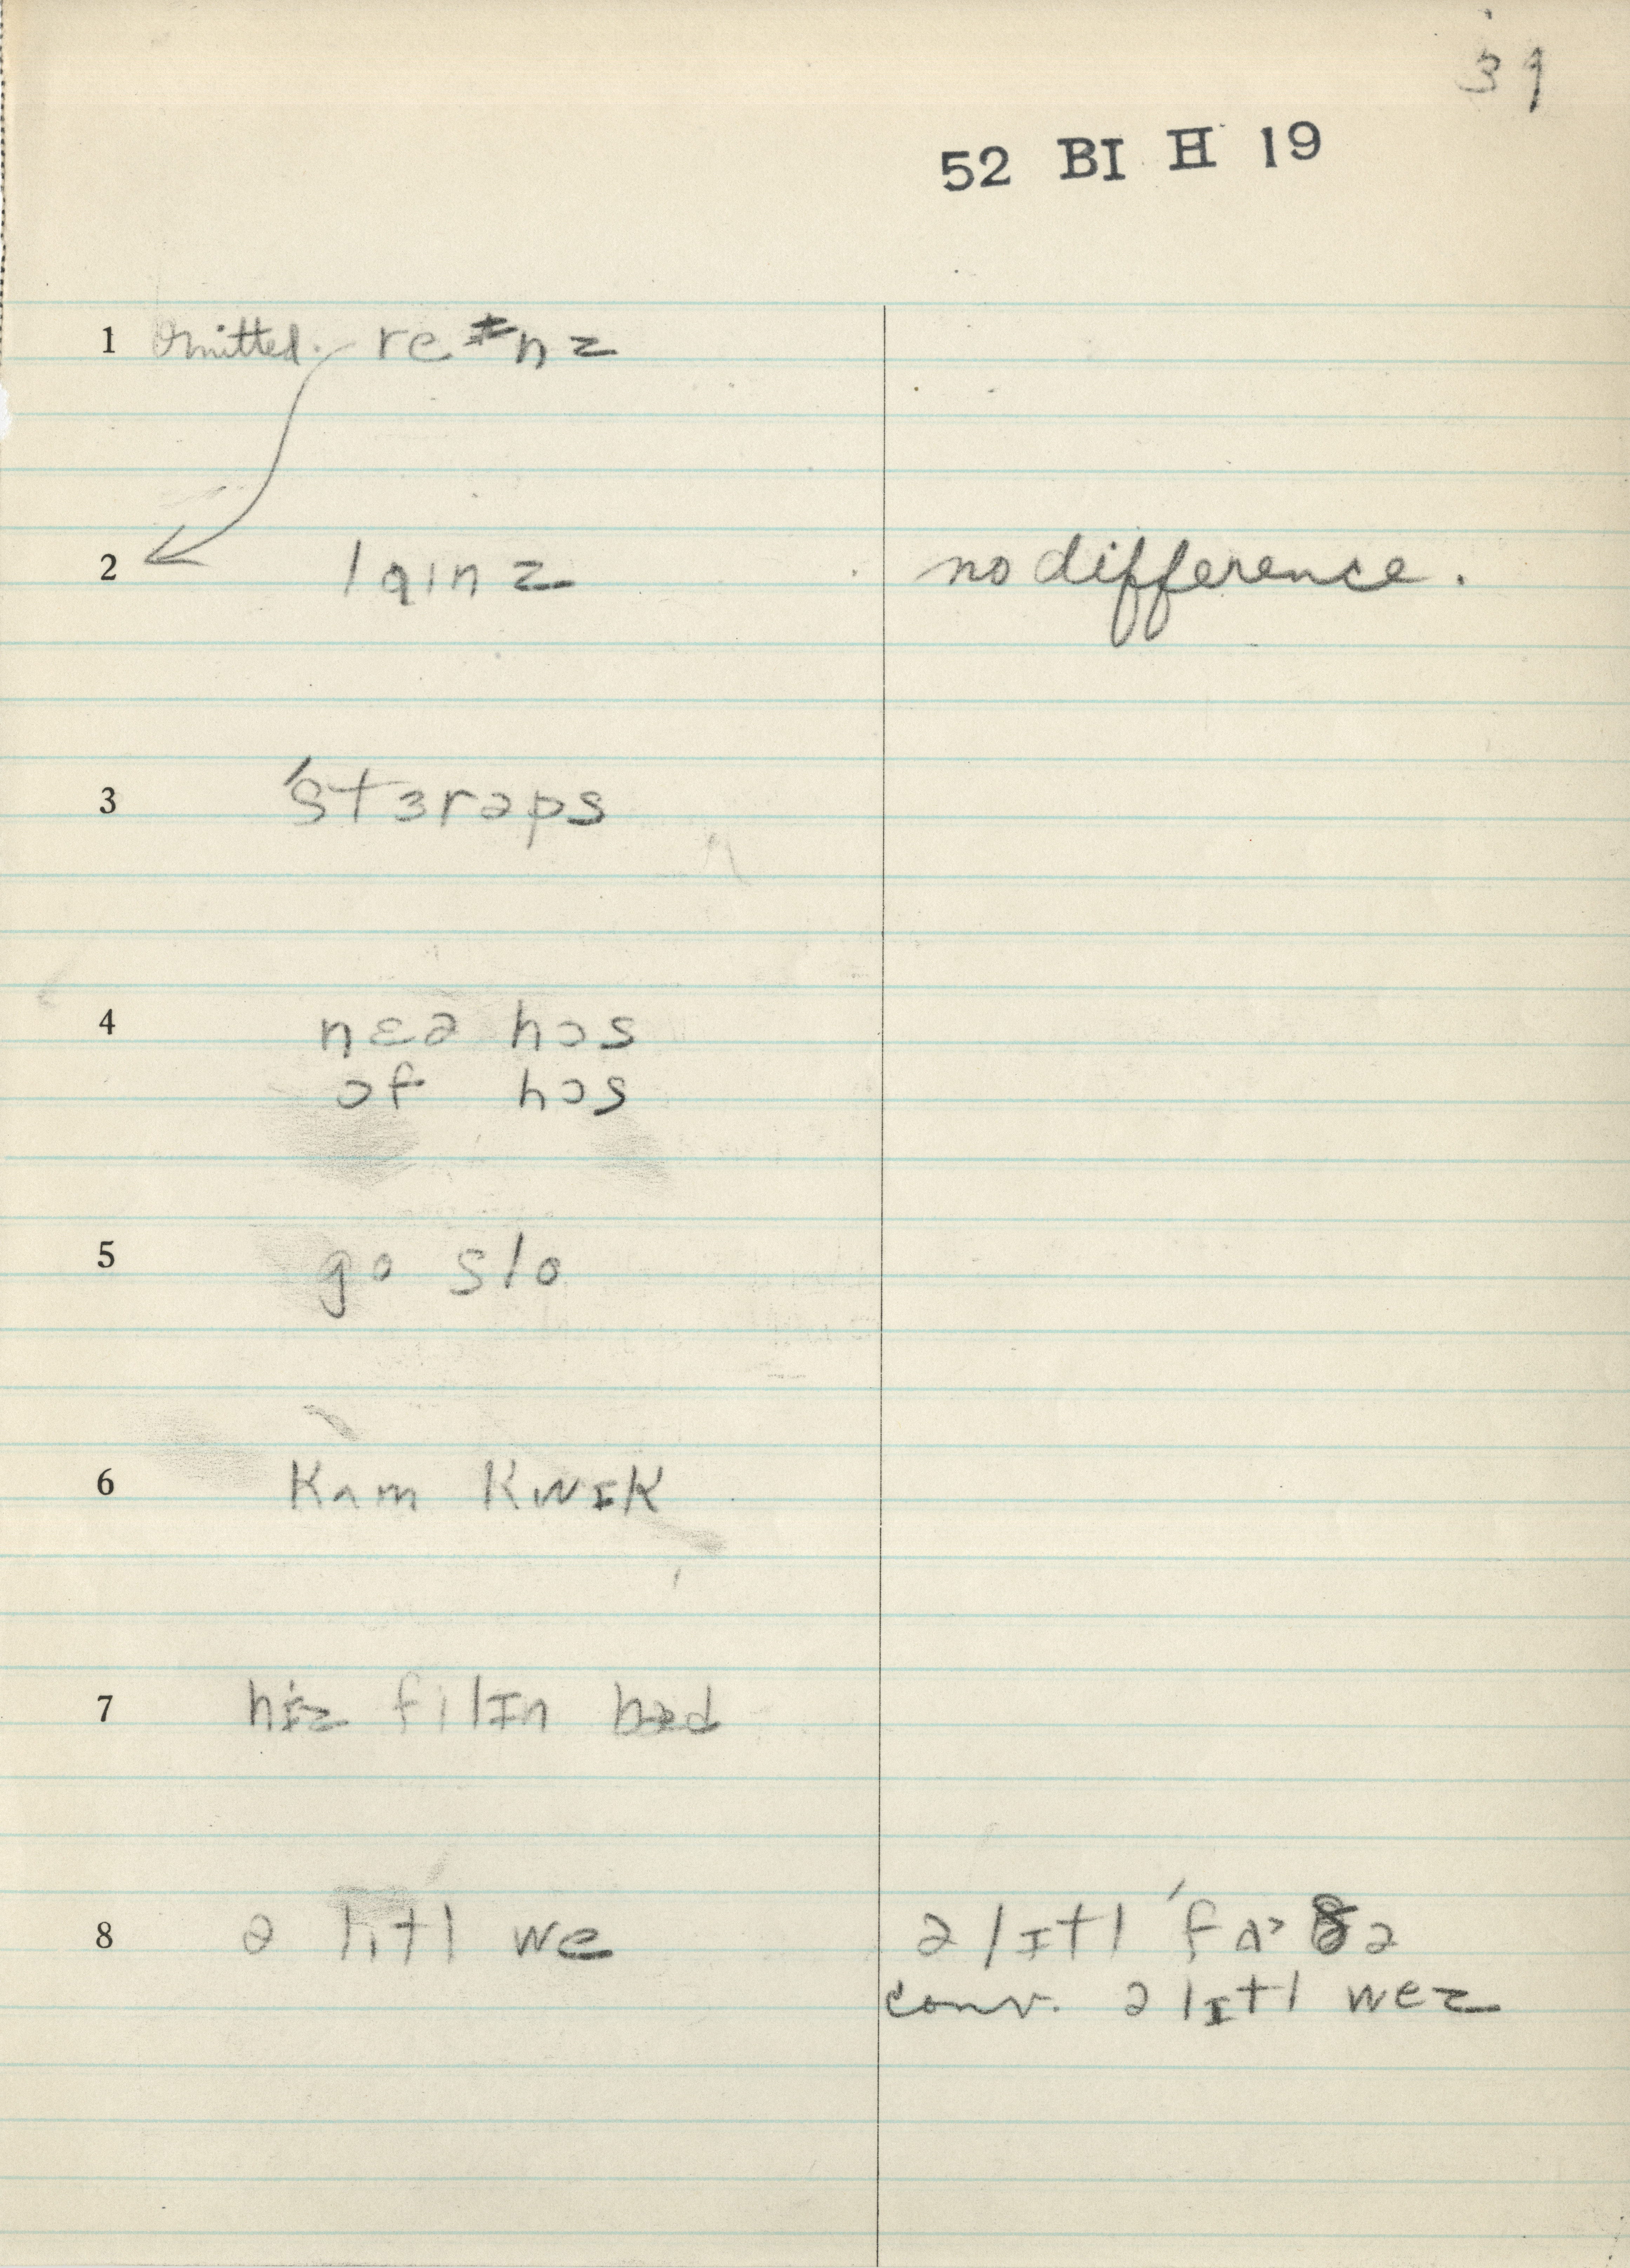 39
52 BI H 19
1 Omitted. re ɪ nz
2 laɪnz no difference.
3 ˈstɜrəps
4 nɛə hɔs
ɔf hɔs
5 go slo
6 kʌm kwɪk
7 hiz filɪn bæd
8 ə lɪtl we ə lɪtl ˈfɑ ðə
conv. ə lɪtl wez